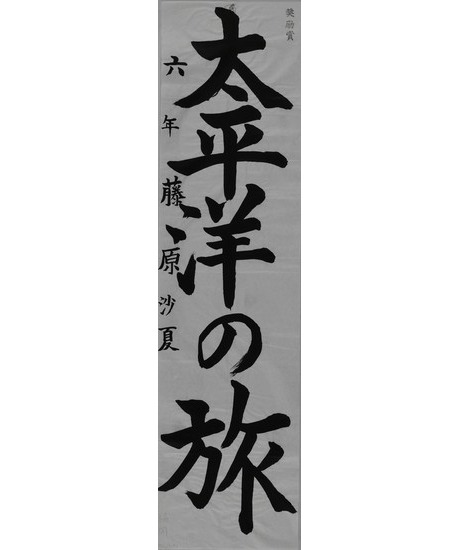 奨励賞
太平洋の旅
六年 藤原沙夏